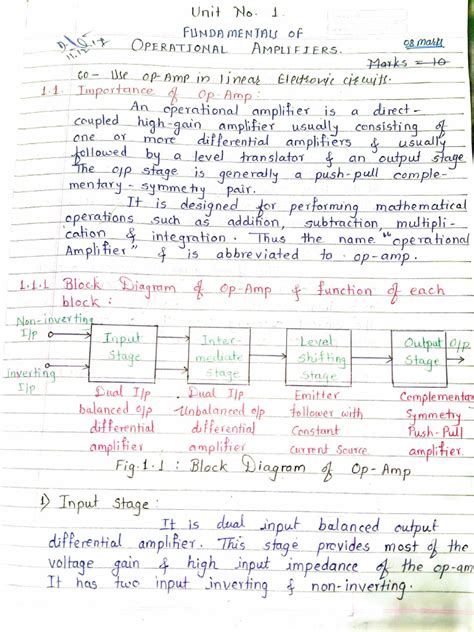 Unit No. 1
FUNDAMENTALS OF
OPERATIONAL AMPLIFIERS.
08 marks
Marks = 10
CO - Use Op-Amp in linear Electronic circuits.
1.1. Importance of Op-Amp:
An operational amplifier is a direct-
coupled high-gain amplifier usually consisting of
one or more differential amplifiers & usually
followed by a level translator & an output stage
The o/p stage is generally a push-pull comple-
mentary-symmetry pair.
It is designed for performing mathematical
operations such as addition, subtraction, multipli-
cation & integration. Thus the name "operational
Amplifier" & is abbreviated to op-amp.
1.1.1 Block Diagram of Op-Amp & function of each
block:
Non-inverting
I/p
inverting
I/p
Input
Stage
Inter-
mediate
Stage
Level
Shifting
Stage
Output
Stage
o/p
Dual I/p
balanced o/p
differential
amplifier
Dual I/p
Unbalanced o/p
differential
amplifier
Emitter
follower with
Constant
current Source
Complementary
Symmetry
Push-Pull
amplifier.
Fig.1.1 : Block Diagram of Op-Amp
1) Input Stage :
It is dual input balanced output
differential amplifier. This stage provides most of the
voltage gain & high input impedance of the op-am
It has two input inverting & non-inverting.